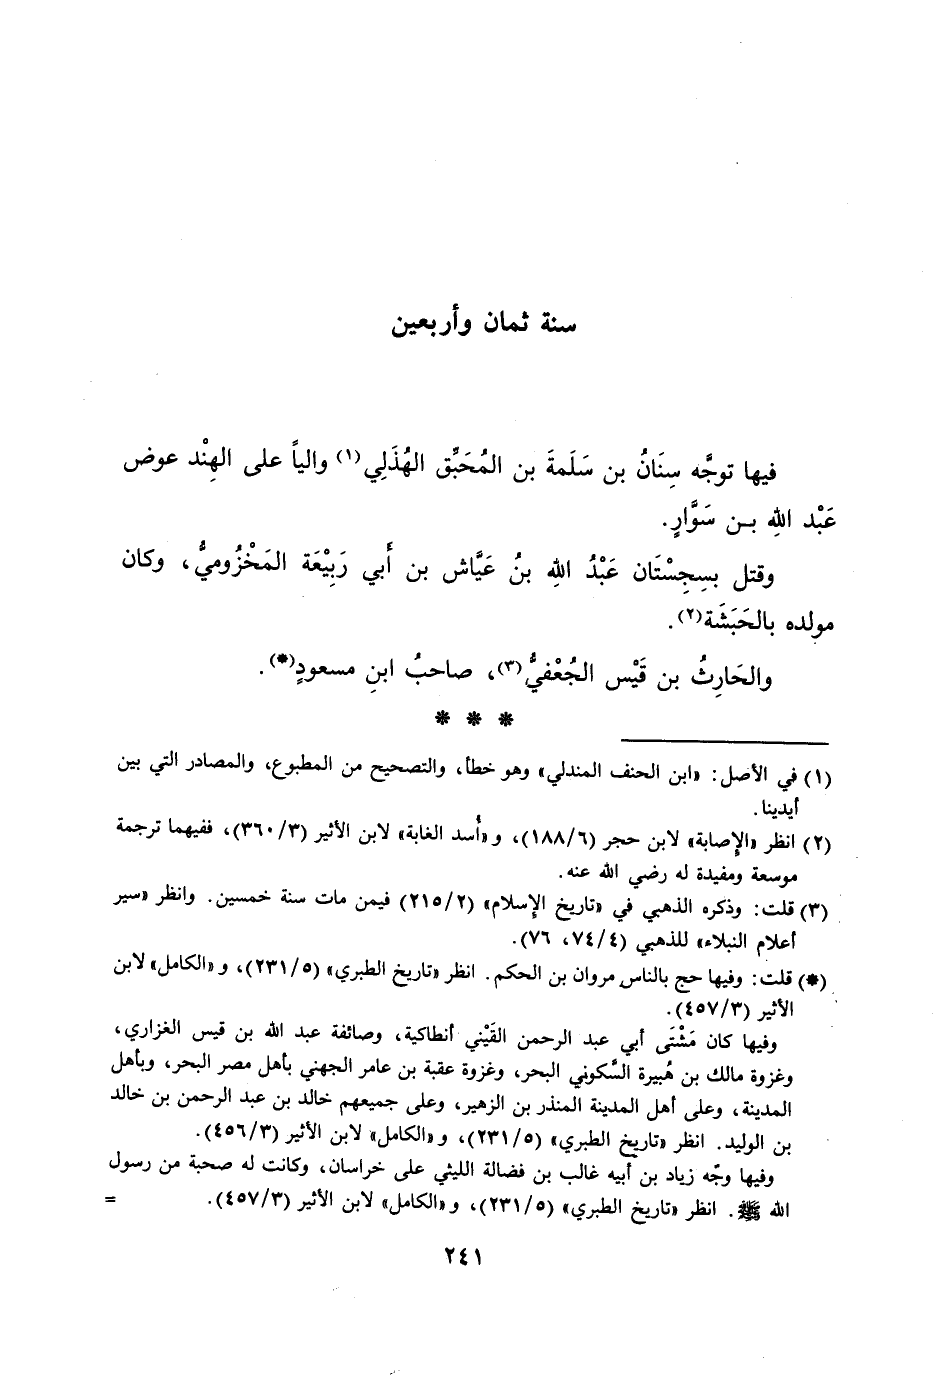 سنة ثمان وأربعين
فيها توجَّه سِنَانُ بن سَلَمةَ بن المُحَبِّق الهُذَلِي(١) والياً على الهِنْد عوض
عَبْد اللهِ بـن سَوَّارٍ.
وقتل بسِجِسْتَان عَبْدُ اللهِ بنُ عَيَّاش بن أَبي رَبِيْعَة المَخْزُوميُّ، وكان
مولده بالحَبَشَة(٢).
والحَارِثُ بن قَيْس الجُعْفيُّ(٣)، صاحبُ ابنِ مسعودٍ(*).
* * *
(١) في الأصل: «ابن الحنف المندلي» وهو خطأ، والتصحيح من المطبوع، والمصادر التي بين
أيدينا.
(٢) انظر «الإِصابة» لابن حجر (١٨٨/٦)، و«أُسد الغابة» لابن الأثير (٣٦٠/٣)، ففيهما ترجمة
موسعة ومفيدة له رضي الله عنه.
(٣) قلت: وذكره الذهبي في «تاريخ الإِسلام» (٢١٥/٢) فيمن مات سنة خمسين. وانظر «سير
أعلام النبلاء» للذهبي (٧٤/٤، ٧٦).
(*) قلت: وفيها حج بالناس مروان بن الحكم. انظر «تاريخ الطبري» (٢٣١/٥)، و«الكامل» لابن
الأثير (٤٥٧/٣).
وفيها كان مَشْتَى أبي عبد الرحمن القَيْني أنطاكية، وصائفة عبد الله بن قيس الغزاري،
وغزوة مالك بن هُبيرة السَّكوني البحر، وغزوة عقبة بن عامر الجهني بأهل مصر البحر، وبأهل
المدينة، وعلى أهل المدينة المنذر بن الزهير، وعلى جميعهم خالد بن عبد الرحمن بن خالد
بن الوليد. انظر «تاريخ الطبري» (٢٣١/٥)، و«الكامل» لابن الأثير (٤٥٦/٣).
وفيها وجّه زياد بن أبيه غالب بن فضالة الليثي على خراسان، وكانت له صحبة من رسول
الله ﷺ. انظر «تاريخ الطبري» (٢٣١/٥)، و«الكامل» لابن الأثير (٤٥٧/٣). =
٢٤١